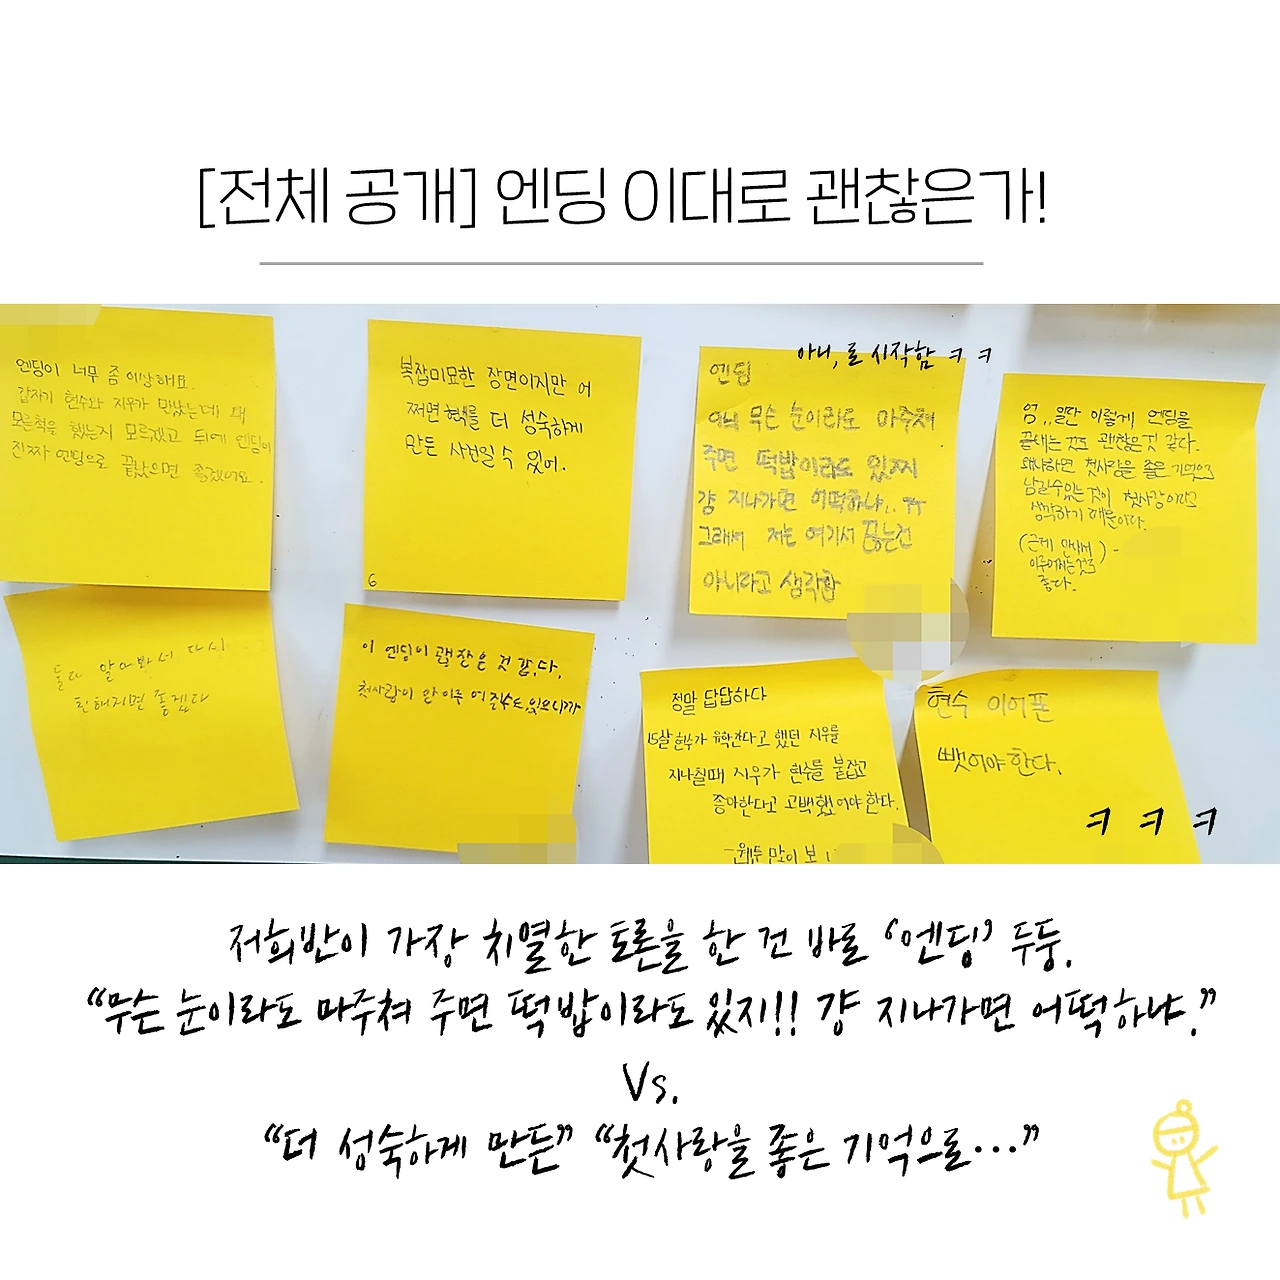 [전체 공개] 엔딩 이대로 괜찮은가!
엔딩이 너무 좀 이상해요.
갑자기 현수와 지우가 만났는데 왜
모른척을 했는지 모르겠고 뒤에 엔딩이
진짜 엔딩으로 끝났으면 좋겠어요.
복잡미묘한 장면이지만 어
쩌면 현수를 더 성숙하게
만든 사건일 수 있어.
6
아니, 로 시작함 ㅋ ㅋ
엔딩
아니 무슨 눈이라도 마주쳐
주면 떡밥이라도 있찌
걍 지나가면 어떡하냐.. ㅠㅠ
그래서 저는 여기서 끝는건
아니라고 생각함
엄,, 일단 이렇게 엔딩을
끝내는 것도 괜찮은것 같다.
왜냐하면 첫사랑을 좋은 기억으로
남길수있는 것이 첫사랑이라고
생각하기 때문이다.
(근데 만나서) -
이루어지는것도
좋다.
둘다 알아봐서 다시
친해지면 좋겠다
이 엔딩이 괜찮은 것 같다.
첫사랑이 안 이루어질수도 있으니까
정말 답답하다
15살 현수가 유학간다고 했던 지우를
지나칠때 지우가 현수를 붙잡고
좋아한다고 고백했어야 한다.
-웹툰 많이 보
현수 이어폰
뺏어야 한다.
ㅋ ㅋ ㅋ
저희반이 가장 치열한 토론을 한 건 바로 ‘엔딩’ 두둥.
“무슨 눈이라도 마주쳐 주면 떡밥이라도 있지!! 걍 지나가면 어떡하냐.”
Vs.
“더 성숙하게 만든” “첫사랑을 좋은 기억으로...”